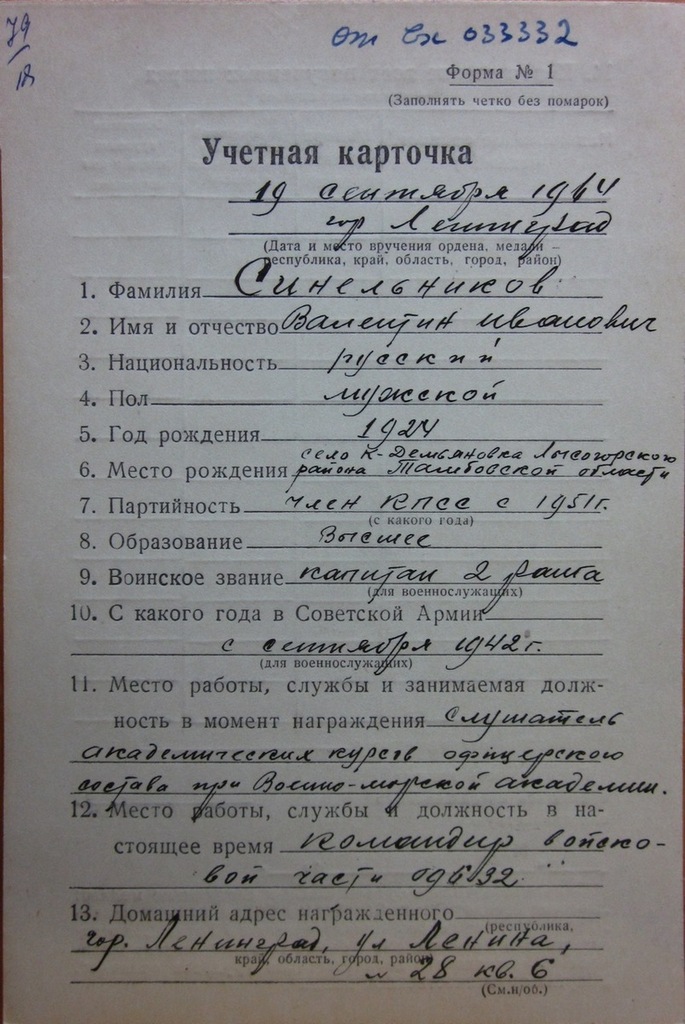 79
18
от вх 033332
Форма № 1
(Заполнять четко без помарок)
Учетная карточка
19 сентября 1964
гор Ленинград
(Дата и место вручения ордена, медали —
республика, край, область, город, район)
1. Фамилия Синельников
2. Имя и отчество Валентин Иванович
3. Национальность русский
4. Пол мужской
5. Год рождения 1924
село К-Демьяновка Лысогорского
6. Место рождения района Тамбовской области
7. Партийность член КПСС с 1951г.
(с какого года)
8. Образование Высшее
9. Воинское звание капитан 2 ранга
(для военнослужащих)
10. С какого года в Советской Армии
с сентября 1942 г.
(для военнослужащих)
11. Место работы, службы и занимаемая долж-
ность в момент награждения слушатель
академических курсов офицерского
состава при Военно-морской академии.
12. Место работы, службы и должность в на-
стоящее время командир войско-
вой части 09632
13. Домашний адрес награжденного
(республика,
гор. Ленинград, ул Ленина,
край, область, город, район)
28 кв. 6
(См.н/об.)